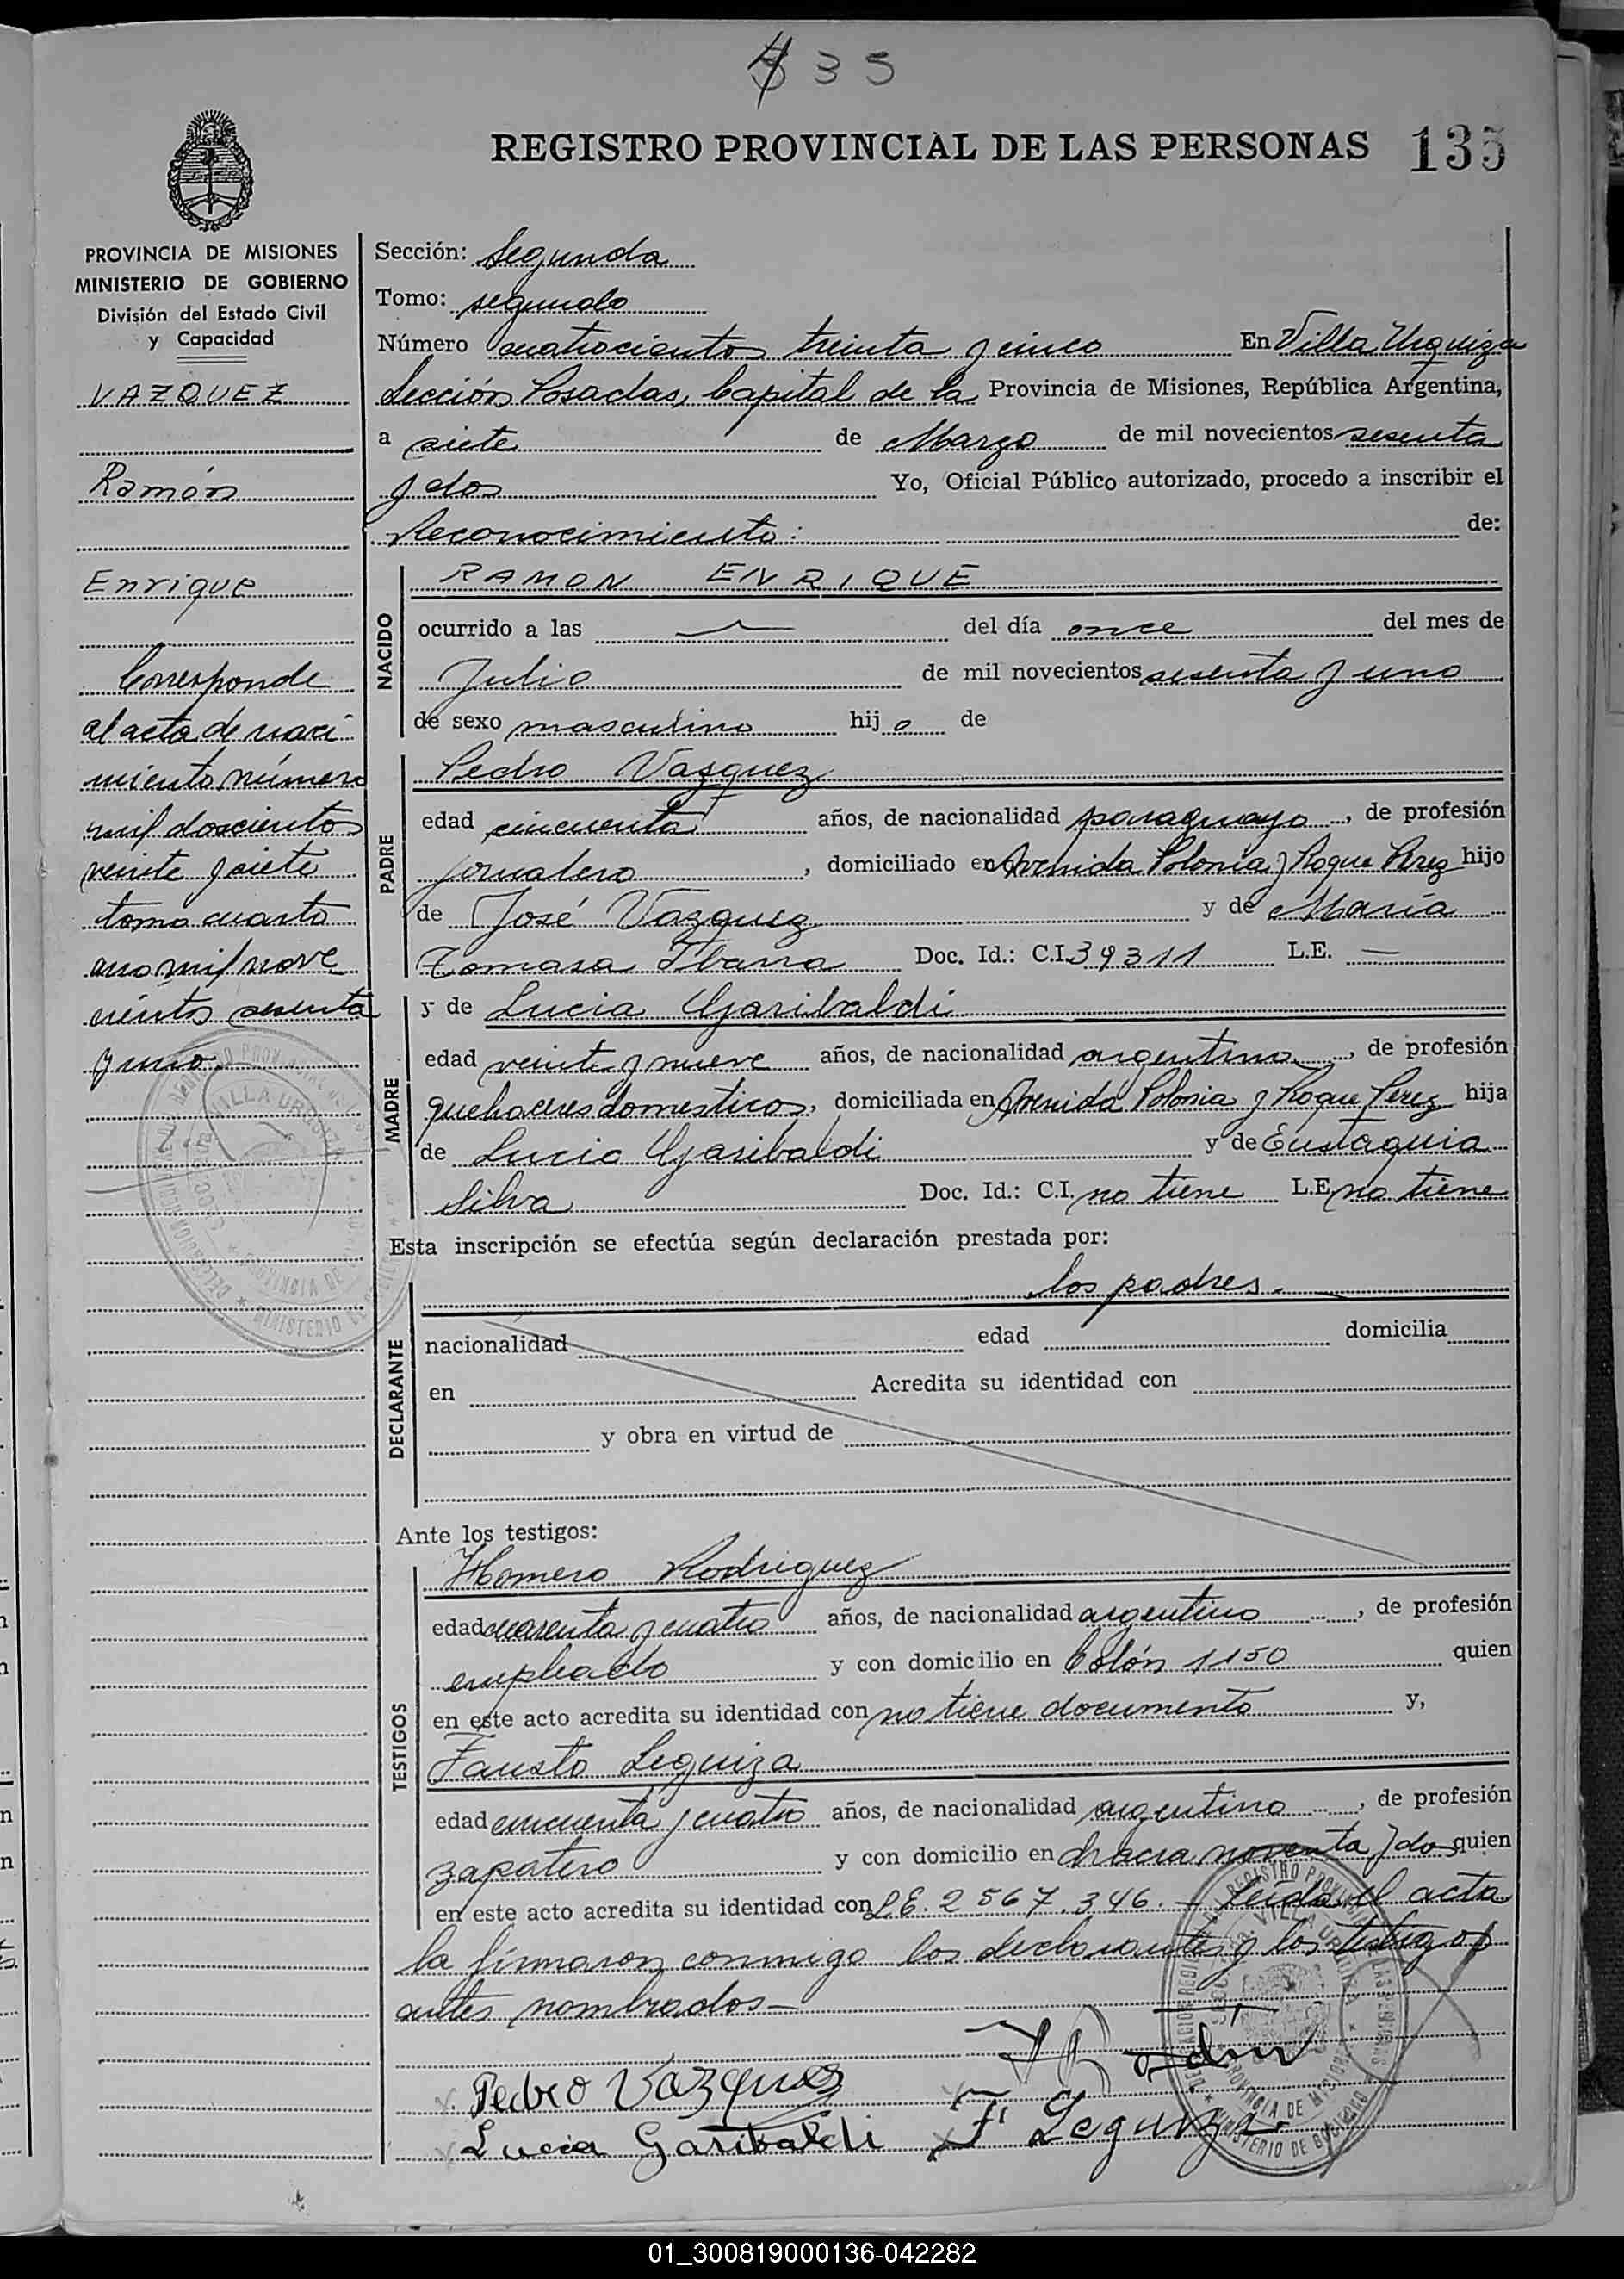 435
REGISTRO PROVINCIAL DE LAS PERSONAS 135
PROVINCIA DE MISIONES
MINISTERIO DE GOBIERNO
División del Estado Civil
y Capacidad
VAZQUEZ
Ramón
Enrique
Corresponde
al acta de naci
miento número
mil doscientos
veinte y siete
tomo cuarto
año mil nove
cientos sesenta
y uno
Sección: Segunda
Tomo: segundo
Número cuatrocientos treinta y cinco En Villa Urquiza
Sección Posadas, Capital de la Provincia de Misiones, República Argentina,
a siete de Marzo de mil novecientos sesenta
y dos Yo, Oficial Público autorizado, procedo a inscribir el
Reconocimiento: de:
NACIDO
RAMON ENRIQUE
ocurrido a las — del día once del mes de
Julio de mil novecientos sesenta y uno
de sexo masculino hijo de
PADRE
Pedro Vazquez
edad cincuenta años, de nacionalidad paraguayo, de profesión
jornalero, domiciliado en Avenida Polonia y Roque Perez hijo
de José Vazquez y de María
Tomasa Ibarra Doc. Id.: C.I. 39311 L.E. —
MADRE
y de Lucia Garibaldi
edad veinte y nueve años, de nacionalidad argentina, de profesión
quehaceres domesticos, domiciliada en Avenida Polonia y Roque Perez hija
de Lucio Garibaldi y de Eustaquia
Silva Doc. Id.: C.I. no tiene L.E. no tiene
Esta inscripción se efectúa según declaración prestada por:
los padres.
DECLARANTE
nacionalidad edad domicilia
en Acredita su identidad con
y obra en virtud de
Ante los testigos:
TESTIGOS
Homero Rodriguez
edad cuarenta y cuatro años, de nacionalidad argentino, de profesión
empleado y con domicilio en Colón 1150 quien
en este acto acredita su identidad con no tiene documento y,
Fausto Leguiza
edad cincuenta y cuatro años, de nacionalidad argentino, de profesión
zapatero y con domicilio en chacra noventa y dos quien
en este acto acredita su identidad con L.E. 2.567.346. — Leida el acta
la firmaron conmigo los declarantes y los testigos
antes nombrados —
Pedro Vazquez
Lucia Garibaldi F. Leguiza
01_300819000136-042282